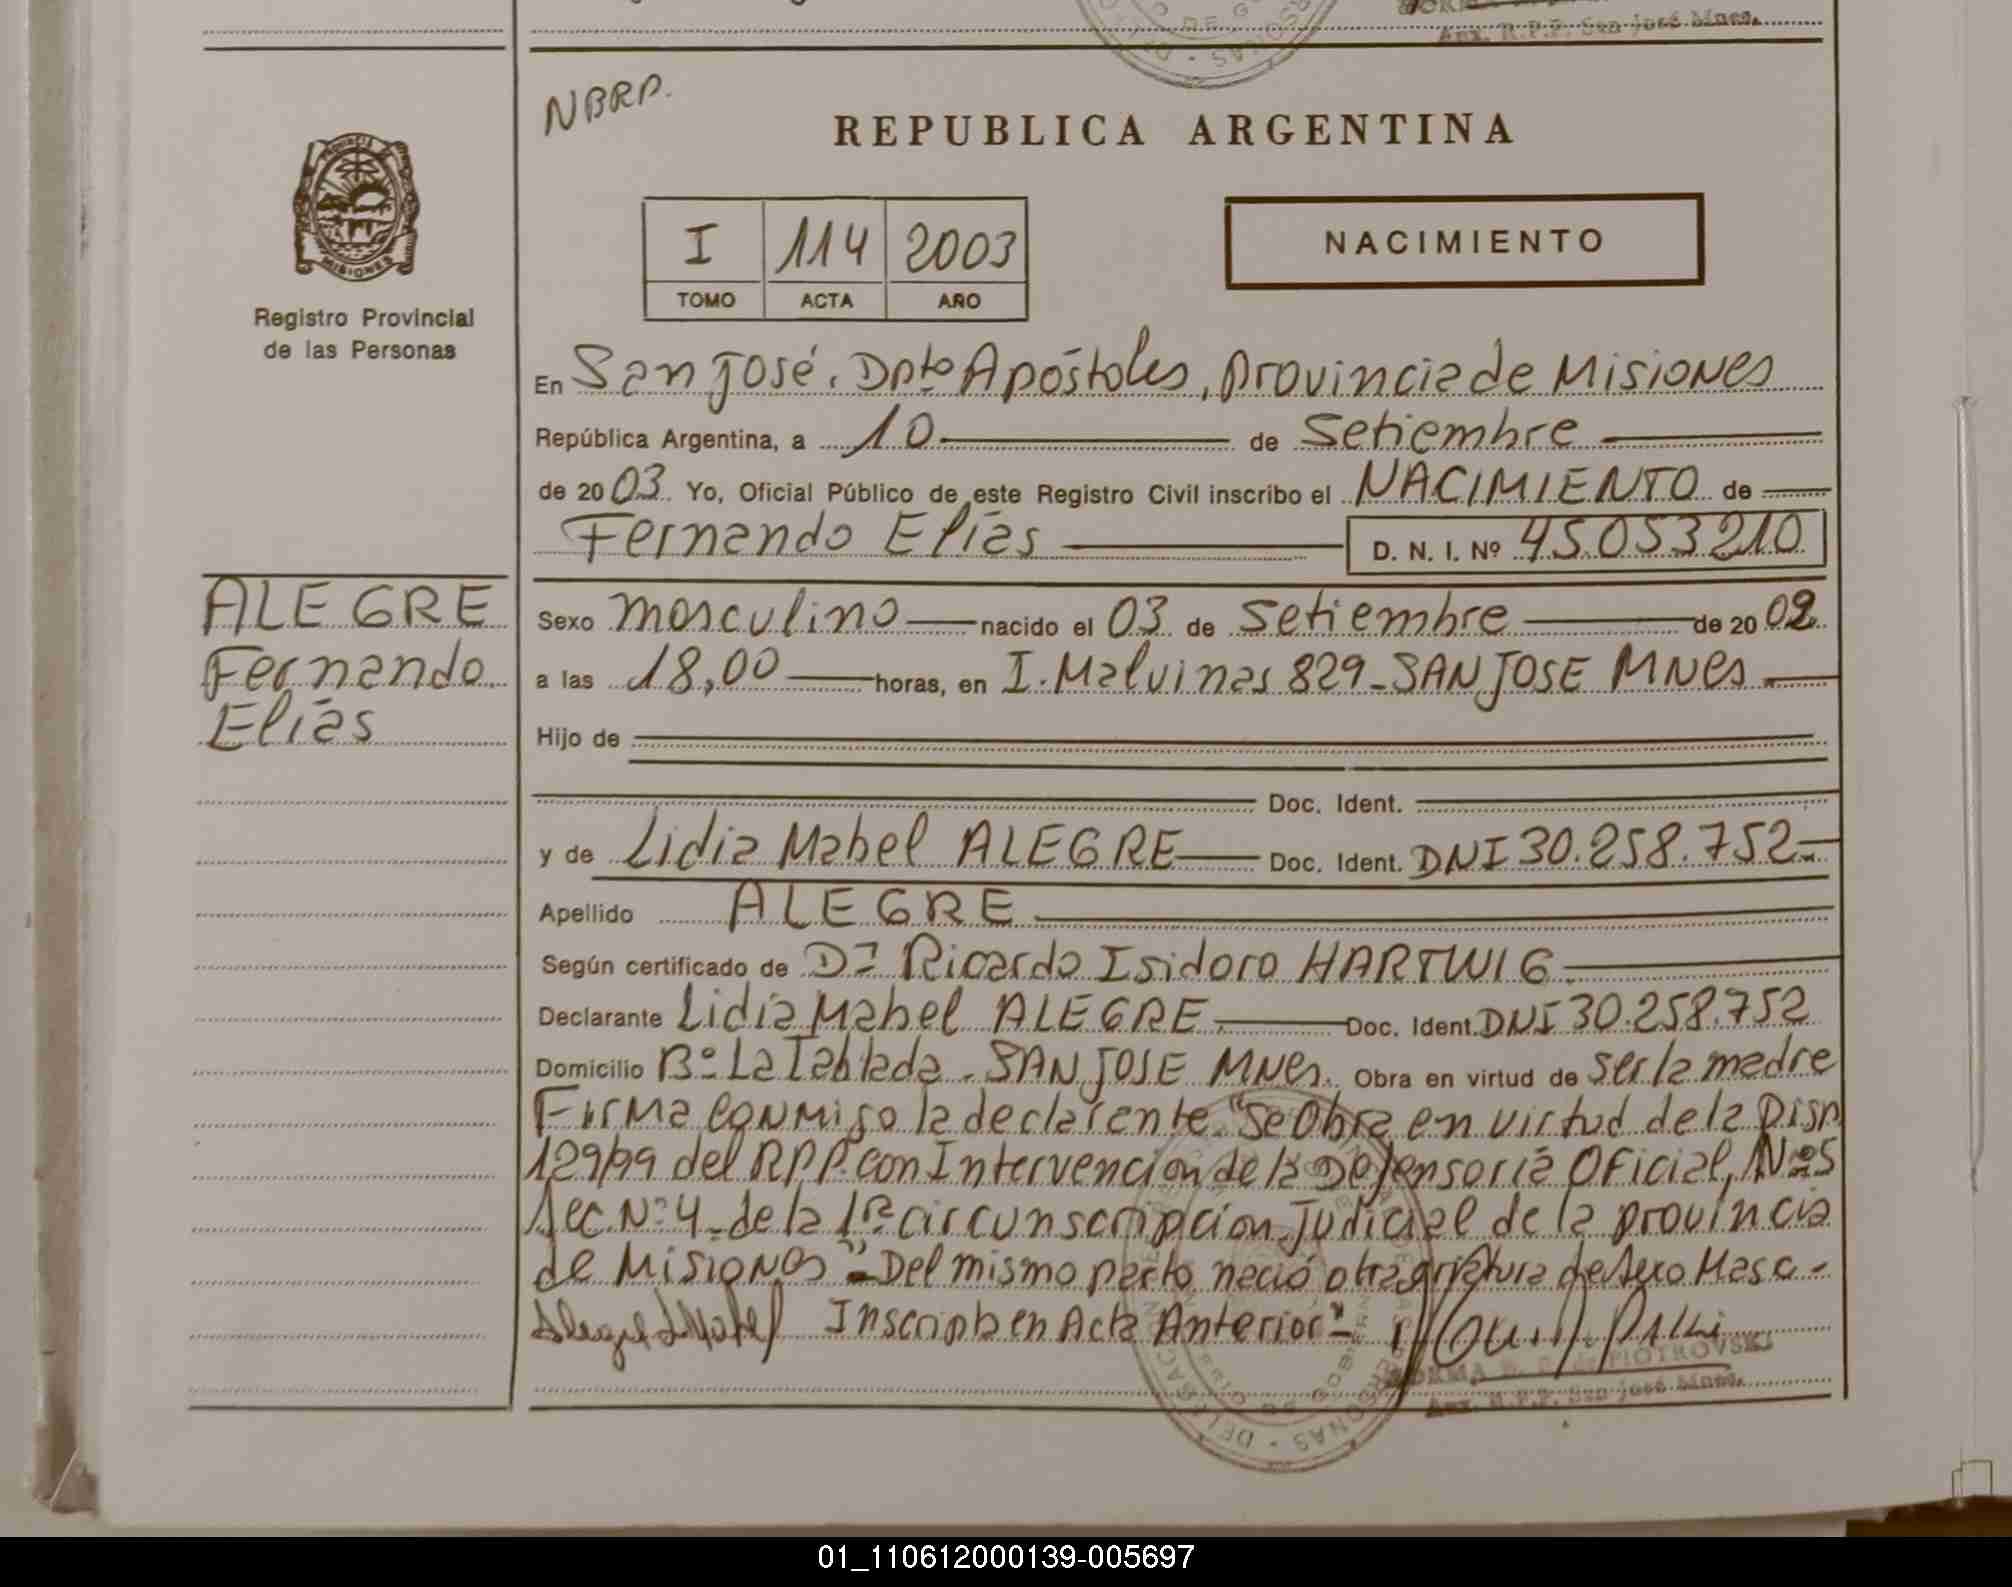 Aux. R.P.P. San José Mnes.
NBRP.
REPUBLICA ARGENTINA
I 114 2003
TOMO ACTA AÑO
NACIMIENTO
MISIONES
Registro Provincial
de las Personas
En San José. Dpto Apóstoles, provincia de Misiones
República Argentina, a 10 de Setiembre
de 2003 Yo, Oficial Público de este Registro Civil inscribo el NACIMIENTO de
Fernando Elías D. N. I. Nº 45.053210
ALEGRE
Fernando
Elías
Sexo masculino nacido el 03 de Setiembre de 2002
a las 18,00 horas, en I. Malvinas 829-SAN JOSE MNes
Hijo de
Doc. Ident.
y de Lidia Mabel ALEGRE Doc. Ident. DNI 30.258.752-
Apellido ALEGRE
Según certificado de Dr Ricardo Isidoro HARTWIG
Declarante Lidia Mabel ALEGRE Doc. Ident. DNI 30.258.752
Domicilio Bº La Tablada - SAN JOSE MNes. Obra en virtud de ser la madre
Firma conmigo la declarante. "Se obra en virtud de la Disp
129/99 del RPP. con Intervencion de la Defensoría Oficial, Nº5
Sec. Nº 4 - de la 1ra circunscripcion Judicial de la provincia
de Misiones"- Del mismo parto nació otra criatura de sexo Masc-
Inscripta en Acta Anterior"-
NORMA PIOTROVSKI
Aux. R.P.P. San José Mnes.
01_110612000139-005697